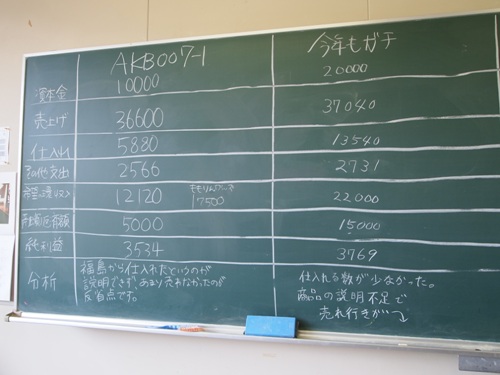 AKB007-1 今年もガチ
資本金 10000 20000
売上げ 36600 37040
仕入れ 5880 13540
その他支出 2566 2731
12120 17500 22000
5000 15000
純利益 3534 3769
分析 福島から仕入れたというのが 仕入れる数が少なかった。
説明できず、あまり売れなかったのが 商品の説明不足で
反省点です。 売れ行きが